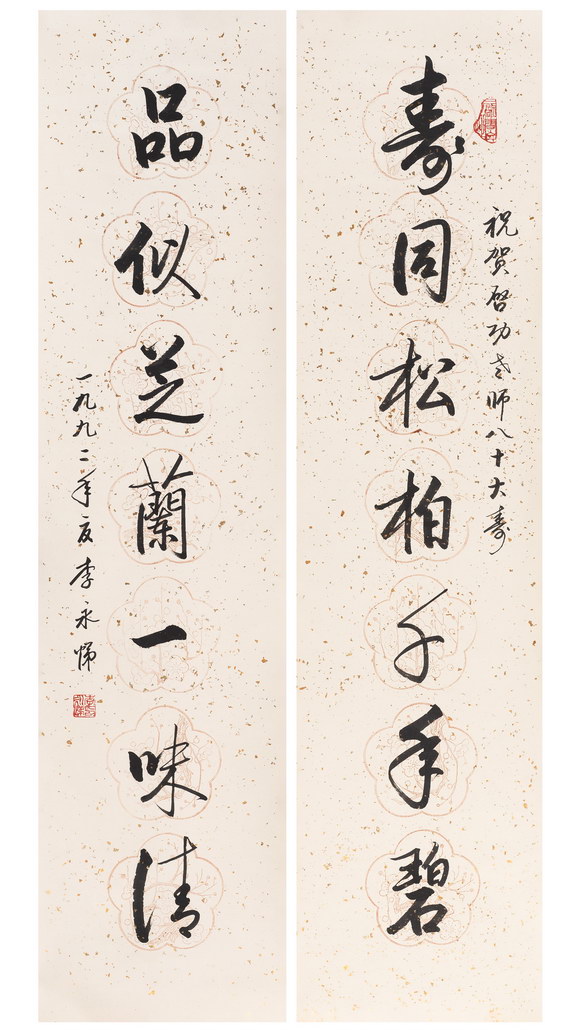 祝贺启功老师八十大寿
寿同松柏千年碧
品似芝蘭一味清
一九九二年夏李永悌